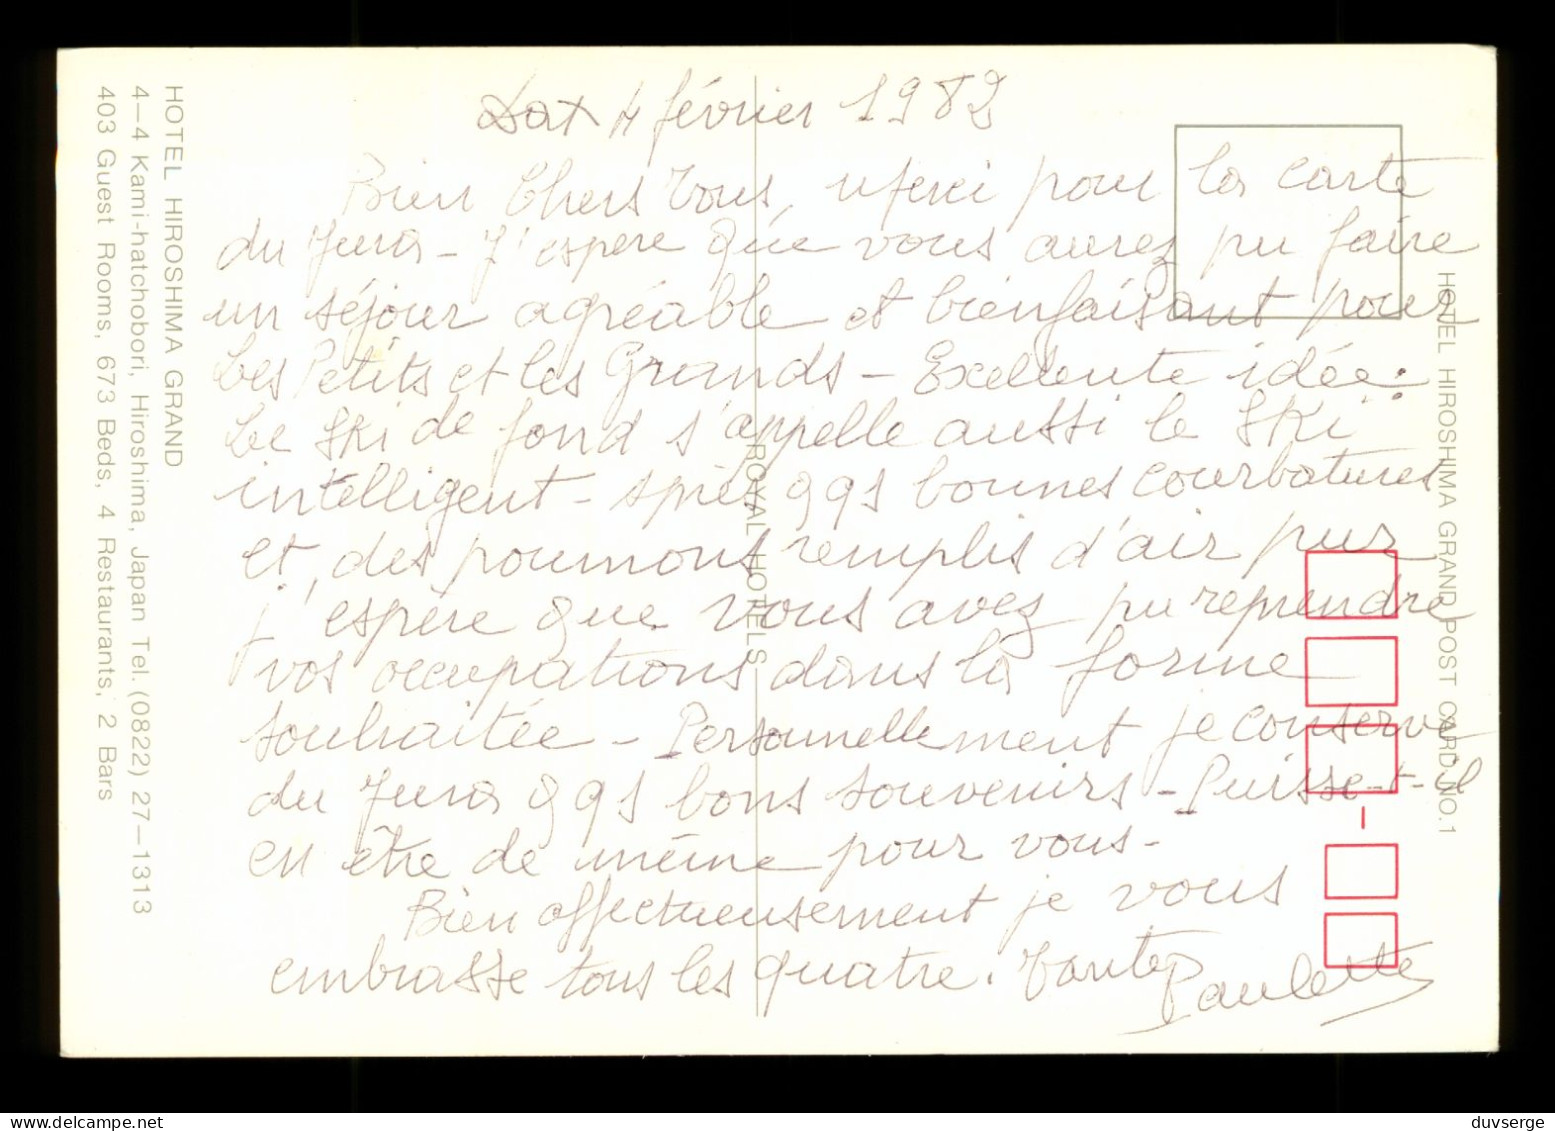 Dax 4 février 1982
Bien Chers Tous, Merci pour la carte
du Jura - J'espere que vous aurez pu faire
un séjour agréable et bienfaisant pour
Les Petits et les Grands - Excellente idée :
Le Ski de fond s'appelle aussi le Ski
intelligent - après qqs bonnes courbatures
et, des poumons remplis d'air pur
j'espère que vous avez pu reprendre
vos occupations dans la forme
souhaitée - Personnellement je conserve
du Jura qqs bons souvenirs - Puisse-t-il
en être de même pour vous -
Bien affectueusement je vous
embrasse tous les quatre. Tante Paulette
HOTEL HIROSHIMA GRAND
4—4 Kami-hatchobori, Hiroshima, Japan Tel. (0822) 27—1313
403 Guest Rooms, 673 Beds, 4 Restaurants, 2 Bars
ROYAL HOTELS
HOTEL HIROSHIMA GRAND POST CARD NO.1
delcampe.net
duvserge